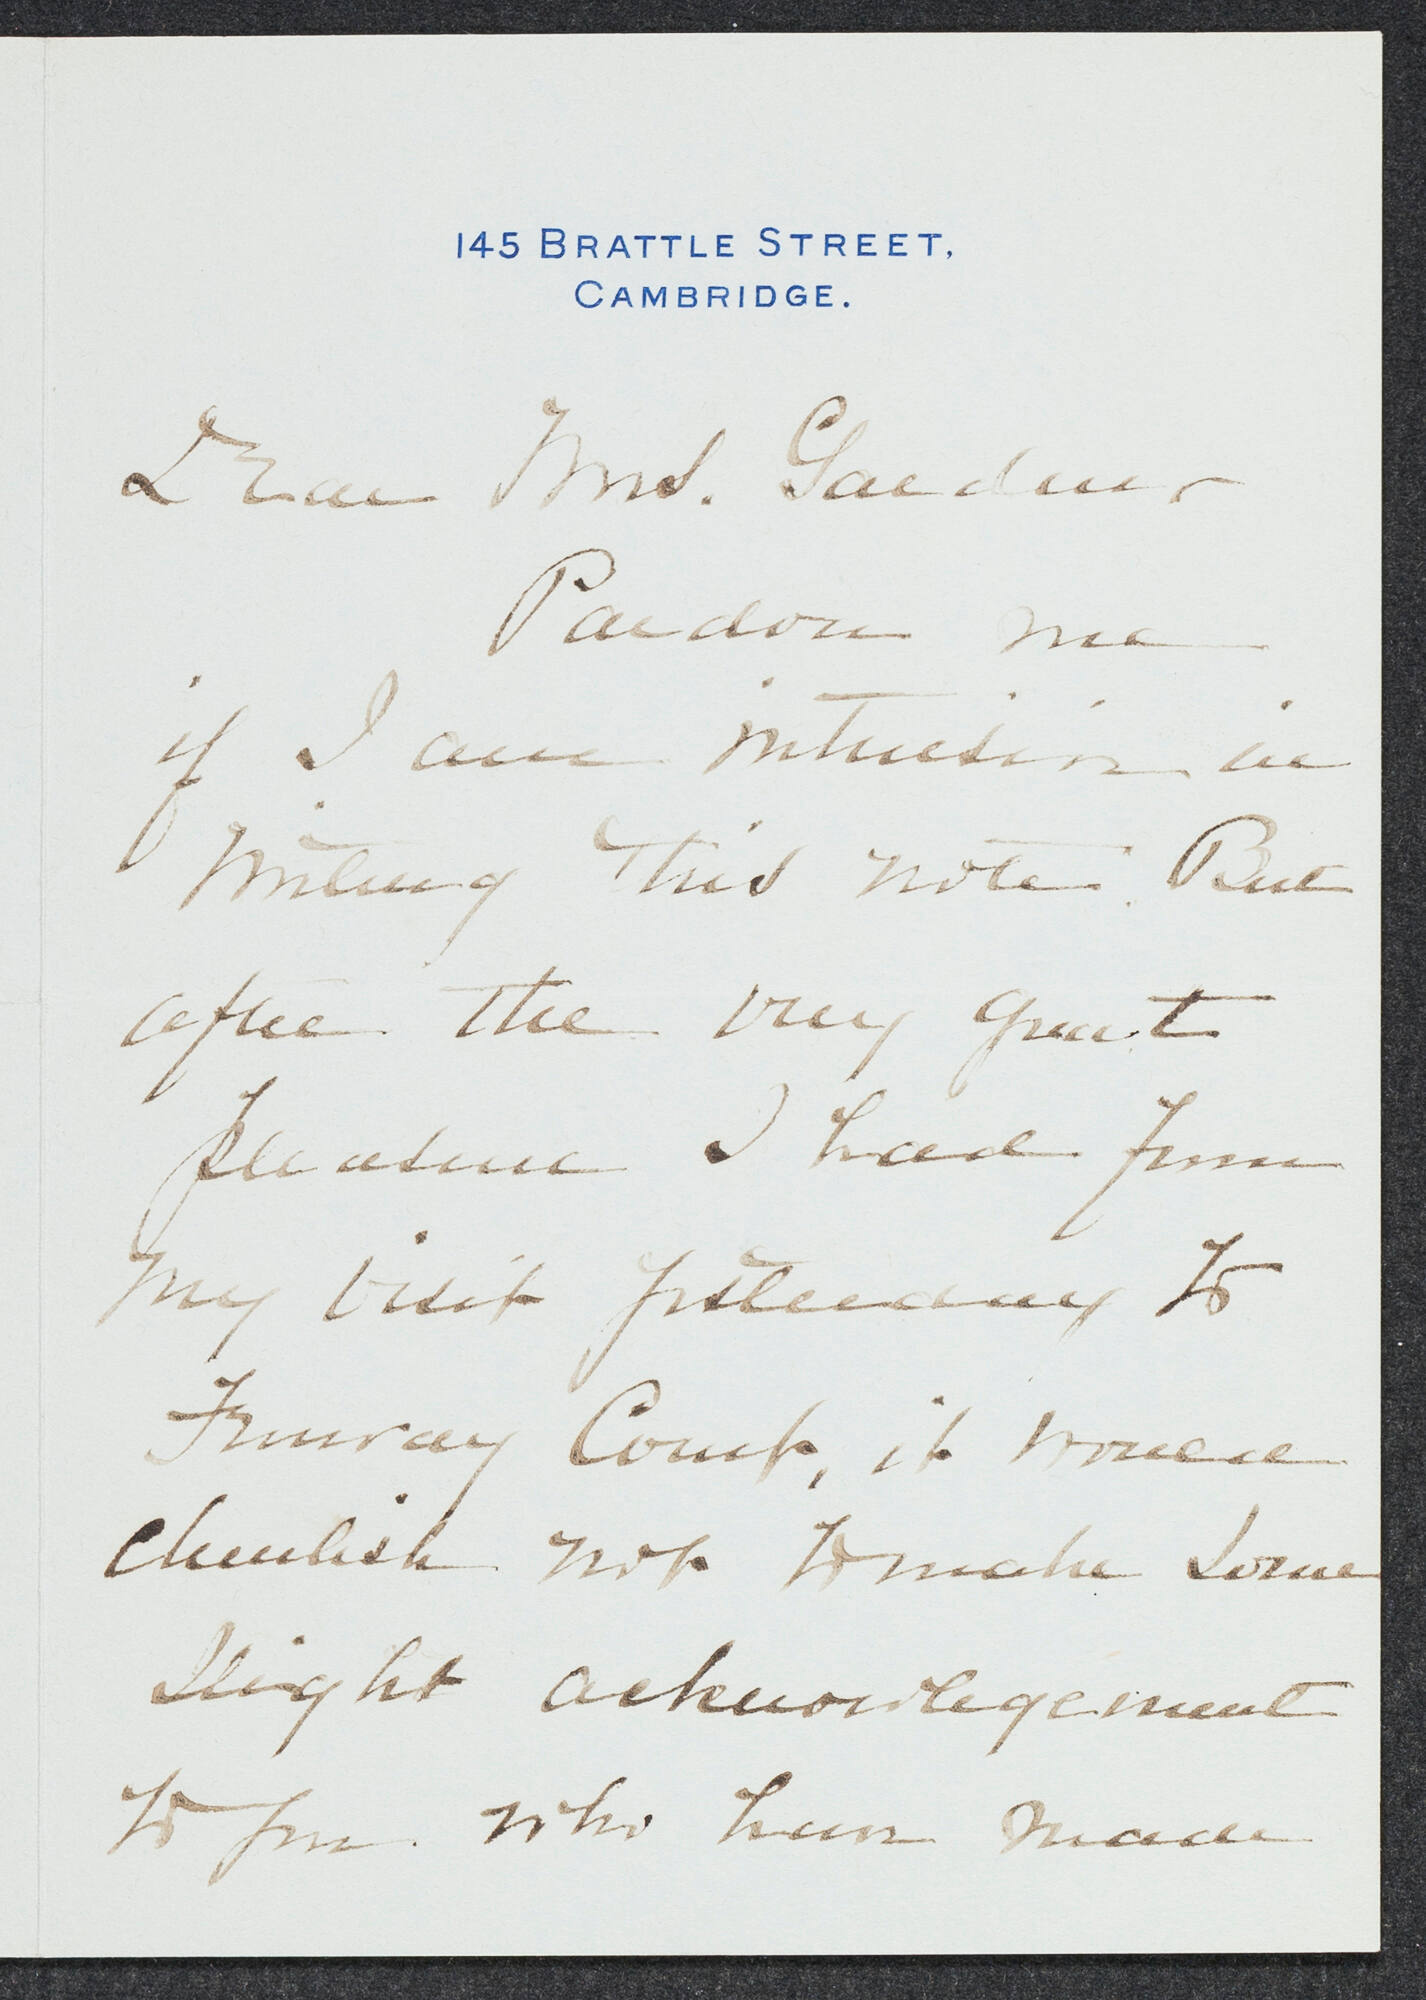 145 BRATTLE STREET,
CAMBRIDGE.
Dear Mrs. Gardner
Pardon me
if I am intrusive in
writing this note. But
after the very great
pleasure I had from
my visit yesterday to
Fenway Court, it would
churlish not to make some
slight acknowlegement
to you who have made